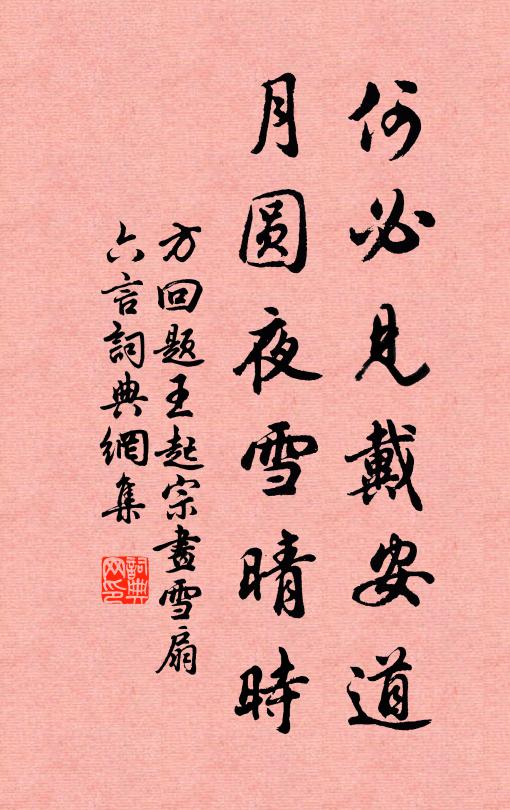 何必見戴安道
月圓夜雪晴時
方回题王起宗畫雪扇
六言詞典網集
詞典
网印